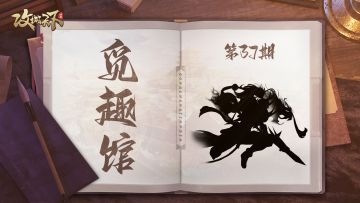 攻城掠地
觅趣馆
第37期